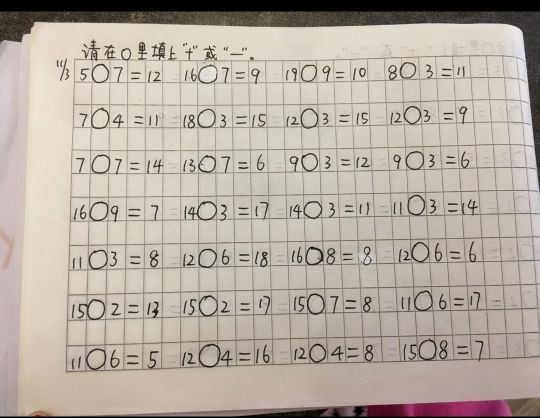 请在○里填上"+"或"-"。
11/3 5○7=12 16○7=9 19○9=10 8○3=11
7○4=11 18○3=15 12○3=15 12○3=9
7○7=14 13○7=6 9○3=12 9○3=6
16○9=7 14○3=17 14○3=11 11○3=14
11○3=8 12○6=18 16○8=8 12○6=6
15○2=13 15○2=17 15○7=8 11○6=17
11○6=5 12○4=16 12○4=8 15○8=7